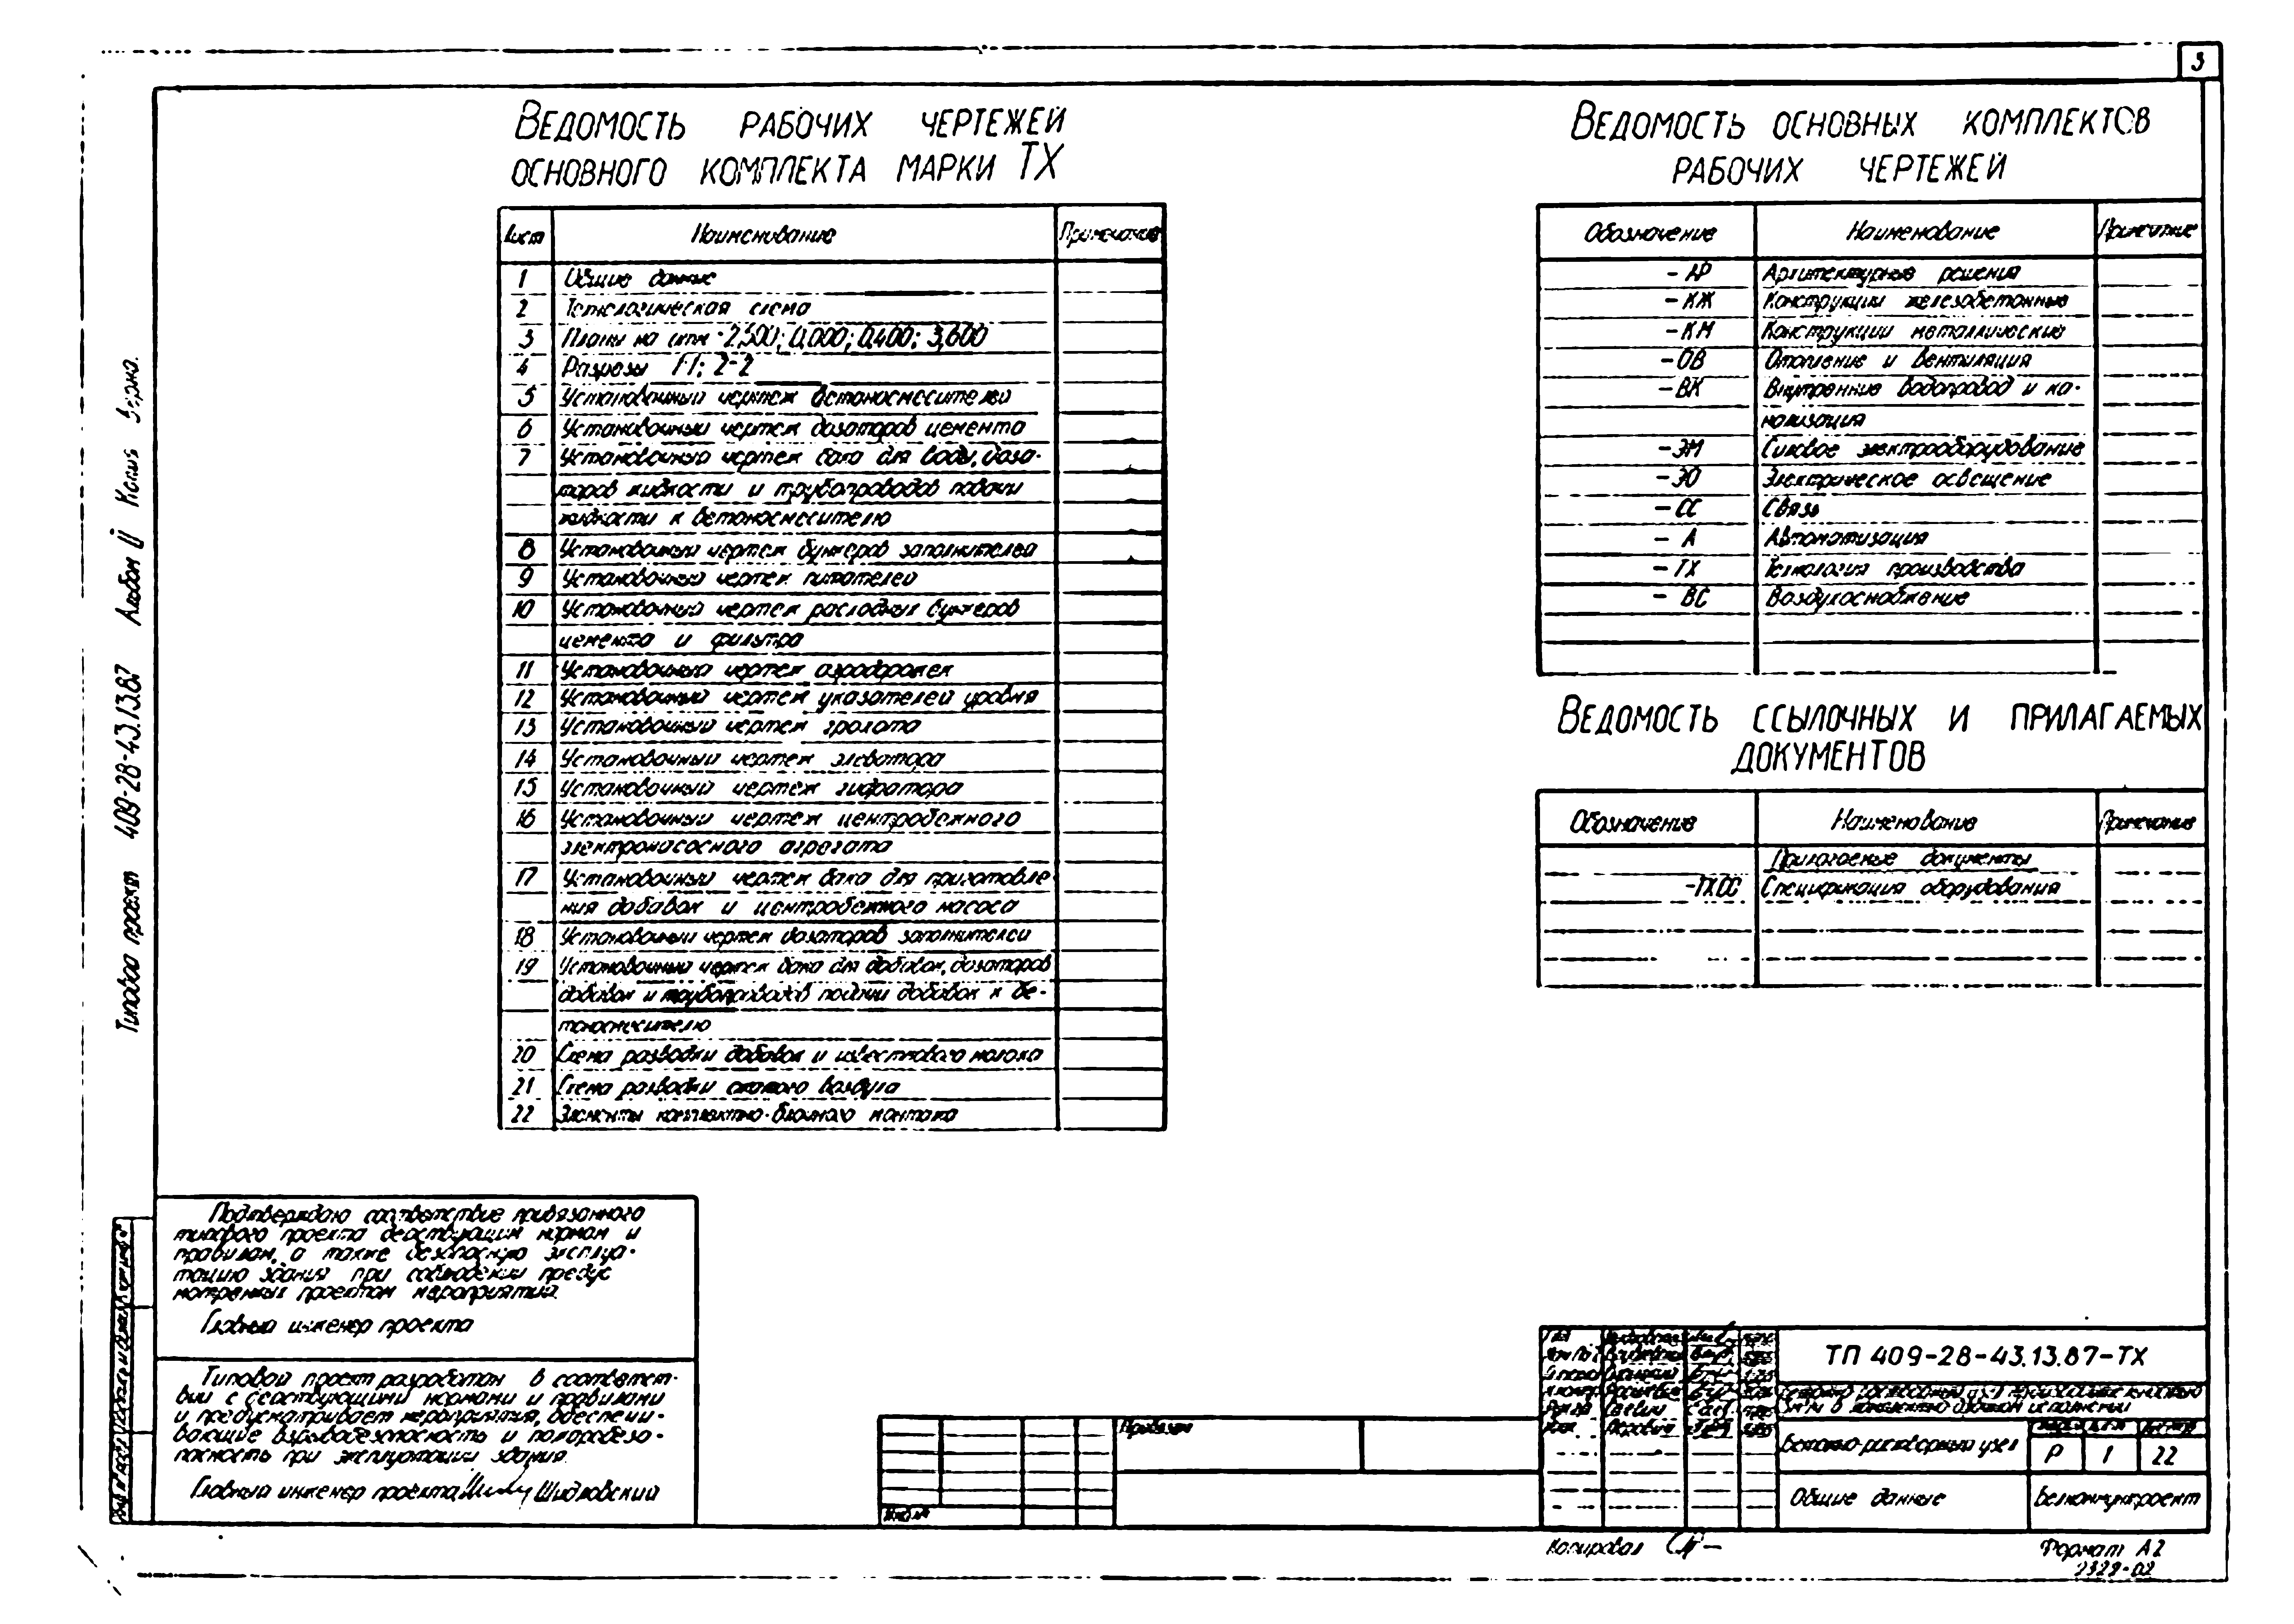 3
Ведомость рабочих чертежей
основного комплекта марки ТХ
Лист Наименование Примечание
1 Общие данные
2 Технологическая схема
3 Планы на отм. -2,500; 0,000; 0,400; 3,600
4 Разрезы 1-1; 2-2
5 Установочный чертеж бетоносмесителей
6 Установочный чертеж дозаторов цемента
7 Установочный чертеж бака для воды, доза-
торов жидкости и трубопроводов подачи
жидкости к бетоносмесителю
8 Установочный чертеж бункеров заполнителей
9 Установочный чертеж питателей
10 Установочный чертеж расходных бункеров
цемента и фильтра
11 Установочный чертеж аэродорожек
12 Установочный чертеж указателей уровня
13 Установочный чертеж грохота
14 Установочный чертеж элеватора
15 Установочный чертеж гидратора
16 Установочный чертеж центробежного
электронасосного агрегата
17 Установочный чертеж бака для приготовле-
ния добавок и центробежного насоса
18 Установочный чертеж дозаторов заполнителей
19 Установочный чертеж бака для добавок, дозаторов
добавок и трубопроводов подачи добавок к бе-
тоносмесителю
20 Схема разводки добавок и известкового молока
21 Схема разводки сжатого воздуха
22 Элементы комплектно-блочного монтажа
Ведомость основных комплектов
рабочих чертежей
Обозначение Наименование Примечание
- АР Архитектурные решения
- КЖ Конструкции железобетонные
- КМ Конструкции металлические
- ОВ Отопление и вентиляция
- ВК Внутренние водопровод и ка-
нализация
- ЭМ Силовое электрооборудование
- ЭО Электрическое освещение
- СС Связь
- А Автоматизация
- ТХ Технология производства
- ВС Воздухоснабжение
Ведомость ссылочных и прилагаемых
документов
Обозначение Наименование Примечание
Прилагаемые документы
-ТХ.СО Спецификация оборудования
Типовой проект 409-28-43.13.87 Альбом II
Подтверждаю соответствие привязанного
типового проекта действующим нормам и
правилам, а также безопасную эксплуа-
тацию здания при соблюдении предус
мотренных проектом мероприятий.
Главный инженер проекта
Типовой проект разработан в соответст-
вии с действующими нормами и правилами
и предусматривает мероприятия, обеспечи-
вающие взрывобезопасность и пожаробезо-
пасность при эксплуатации здания.
Главный инженер проекта Шидловский
Привязан
Инв.№
ТП 409-28-43.13.87-ТХ
Бетонно-растворный узел
Р 1 22
Общие данные
Белкоммунпроект
Копировал
Формат А2